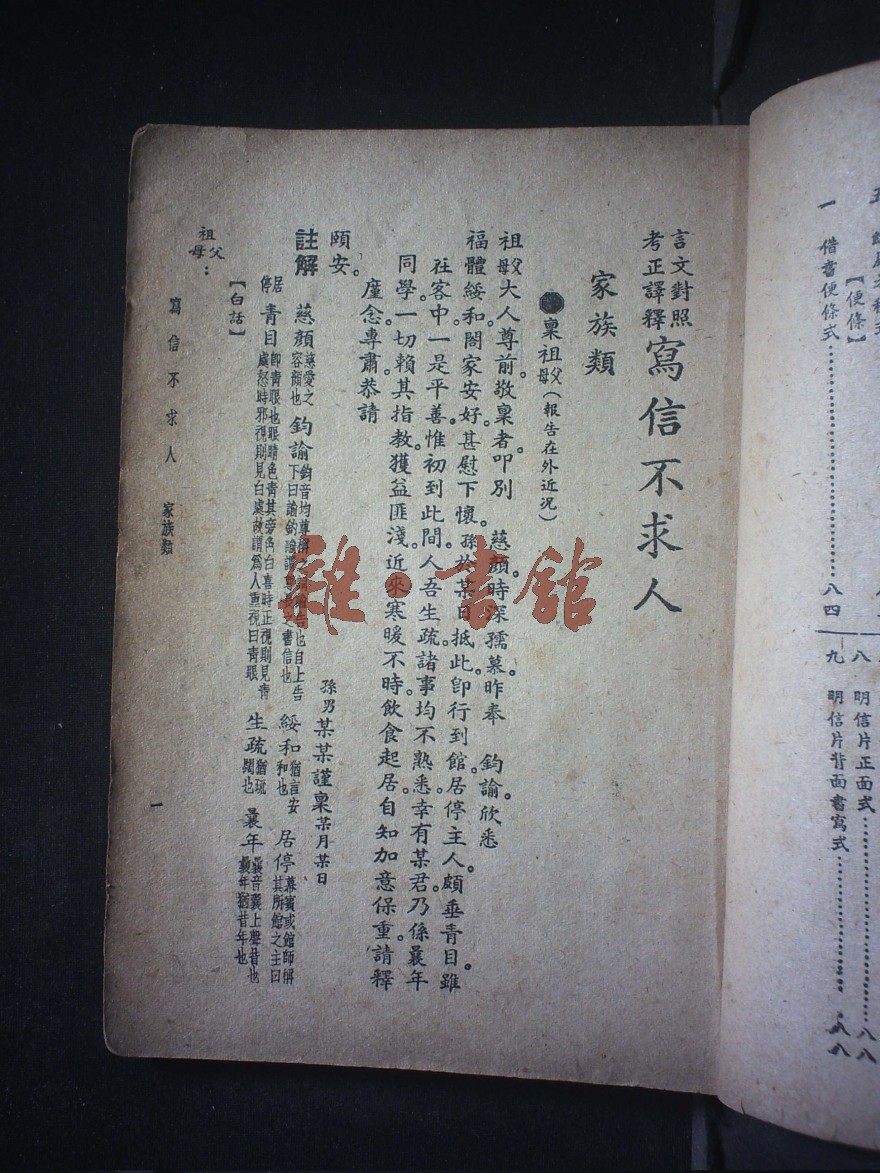 言文對照
考正譯釋
寫信不求人
家族類
稟祖父母（報告在外近況）
祖父母大人尊前。敬稟者。叩別　慈顏。時深孺慕。昨奉　鈞諭。欣悉
福體綏和。閤家安好。甚慰下懷。孫於某日抵此。卽行到館。居停主人。頗垂青目。雖
在客中。一是平善。惟初到此間。人吾生疏。諸事均不熟悉。幸有某君。乃係曩年
同學。一切賴其指教。獲益匪淺。近來寒暖不時。飲食起居。自知加意保重。請釋
廑念。專肅恭請
頤安。
孫男某某謹稟某月某日
註解　慈顏慈愛之容顏也　鈞諭鈞音均尊稱之詞諭告也自上告下曰諭鈞諭謂尊長之書信也　綏和猶言安和也　居停幕賓或館師稱其所館之主曰
居停　青目卽青眼也眼睛色青其旁色白喜時正視則見青處怒時邪視則見白處故謂爲人重視曰青眼　生疏猶疏闊也　曩年曩音囊上聲昔也曩年猶昔年也
【白話】
祖父母：
寫信不求人　家族類
一
【便條】
一　借書便條式
八四
八　明信片正面式
八八
九　明信片背面書寫式
八八
雜·書館